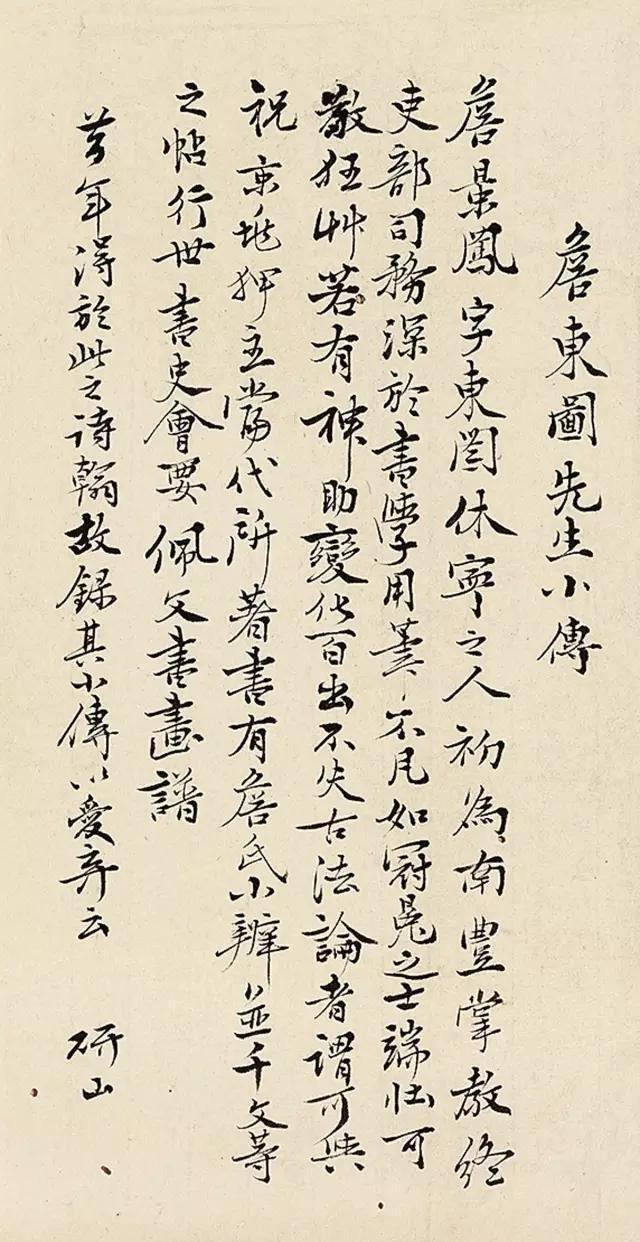 詹東圖先生小傳
詹景鳳字東圖休寧之人初為南豐掌教終
吏部司務深於書學用筆不凡如冠冕之士端壯可
敬狂艸若有神助變化百出不失古法論者謂可與
祝京兆狎主當代所著書有詹氏小辨並千文等
之帖行世書史會要佩文書畫譜
年得於此之詩翰故錄其小傳以愛云
研山